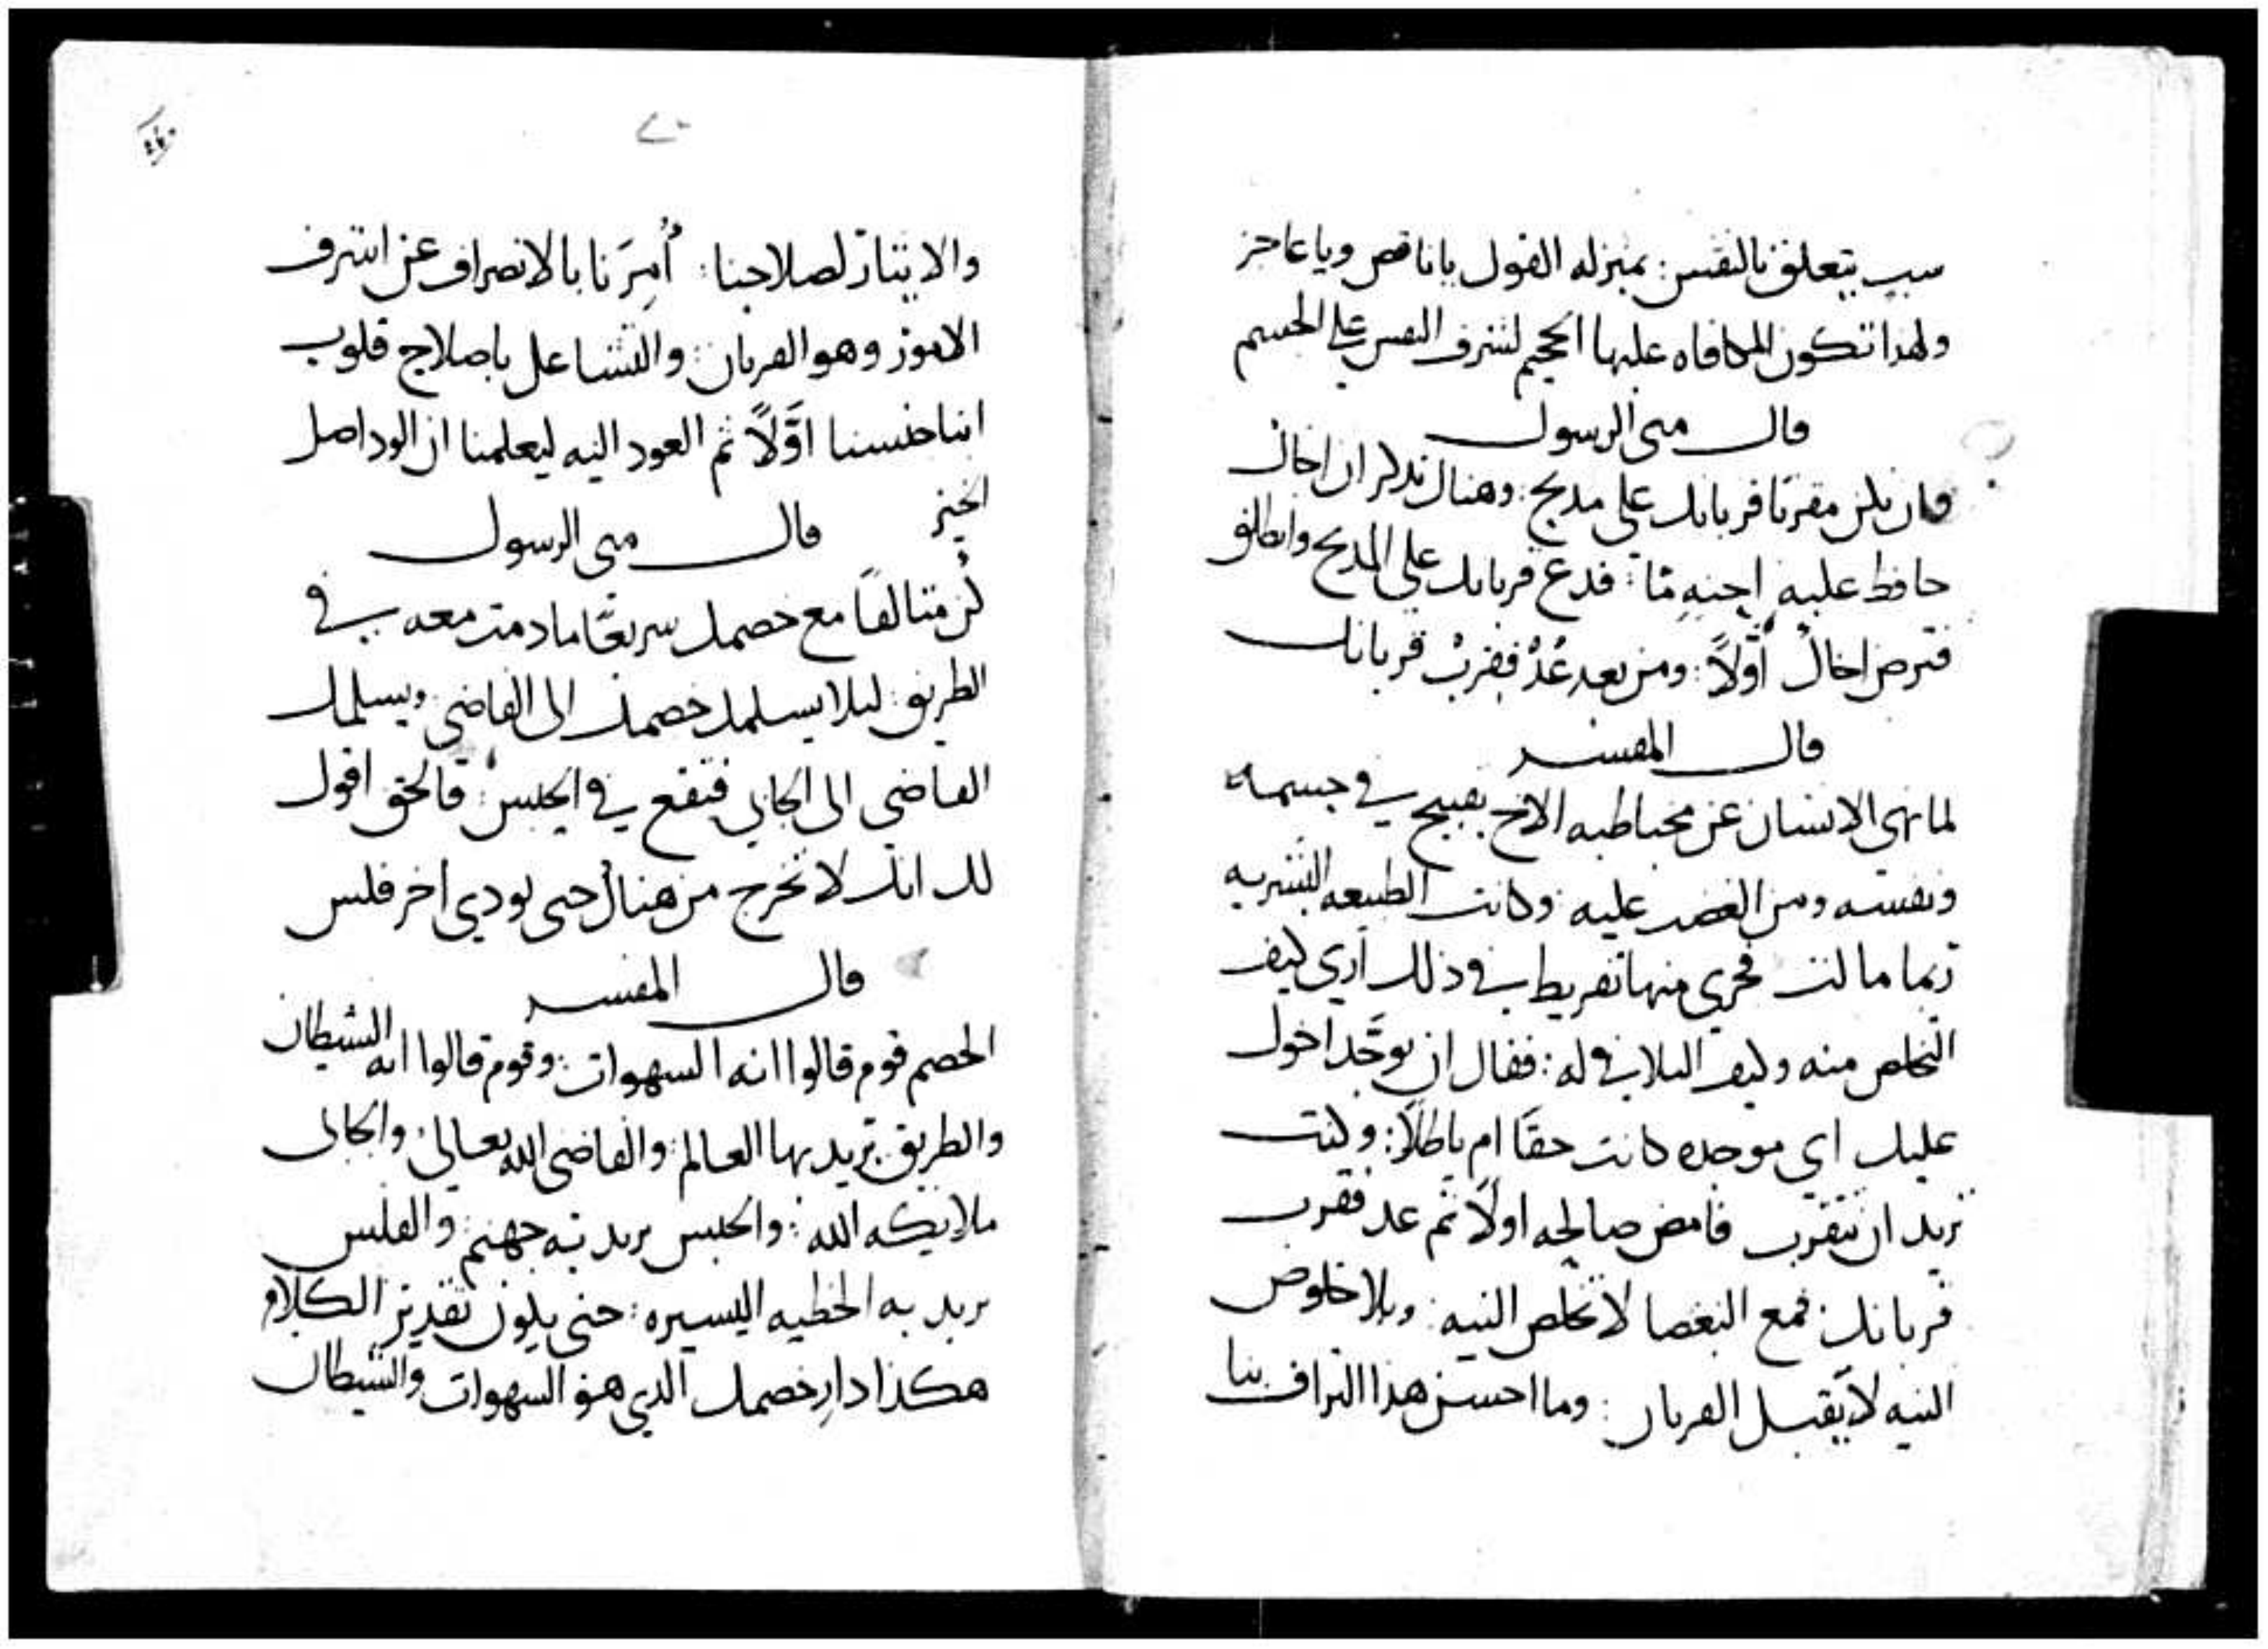 سبب يتعلق بالنفس: بمنزله القول يا ناقص ويا عاجز
ولهدا تكون المكافاه عليها الجحيم لشرف النفس على الجسم
قال متى الرسول
فان تكن مقربًا قربانك على مدبح: وهناك تدكر ان اخاك
حافظ عليه احنهٍ مّا: فدع قربانك على المدبح وانطلق
فترض اخاكَ أوّلاً: ومن بعد عُدْ فقربْ قربانك
قال المفسر
لما نهى الانسان عن مخاطبه الاخ بقبيح في جسمه
ونفسه ومن الغضب عليه وكانت الطبيعه البشريه
ربما مالت فجرى منها تفريط في ذلك ارى كيف
التخلص منه وكيف التلافي له: فقال ان توجّد اخوك
عليك اي موجده كانت حقًا ام باطلاً: وكنت
تريد ان تتقرب فامض صالحه اولاً ثم عد فقرب
قربانك: فمع البغضا لا تخلص النيه: وبلا خلوص
النيه لا يقبل القربان: وما احسن هدا الترااف بنا
٧٠
والايثار لصلاحنا: أُمِرَنا بالانصراف عن اشرف
الامور وهو القربان: والتشاغل باصلاح قلوب
ابنا جنسنا اوَّلاً ثم العود اليه ليعلمنا ان الود اصل
الخير قال متى الرسول
كُن متالفًا مع خصمك سريعًا مادمت معه في
الطريق: ليلا يسلمك خصمك الى القاضي ويسلمك
القاضي الى الجابي فتقع في الحبس: فالحق اقول
لك انك لا تخرج من هناك حتى تودي اخر فلس
قال المفسر
الخصم قوم قالوا انه الشهوات: وقوم قالوا انه الشيطان
والطريق تريد بها العالم: والقاضي الله تعالى: والجابي
ملايكه الله: والحبس يريد به جهنم: والفلس
يريد به الخطيه اليسيره: حتى يكون تقدير الكلام
هكذا دارِ خصمك الدي هو الشهوات والشيطان